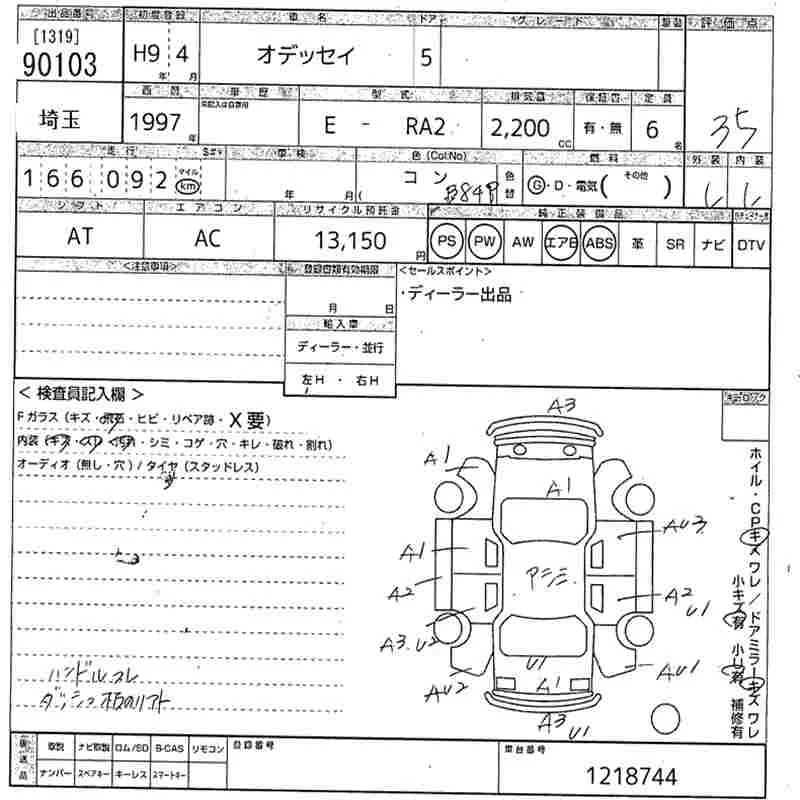 出品番号 初度登録 車名 ドア グレード 車歴 評価点
[1319]
90103 H9年 4月 オデッセイ 5
西暦 車歴 型式 排気量 保証書 定員
未記入は自家用
埼玉 1997年 E - RA2 2,200cc 有・無 6名 35
走行 車検 色(Col.No) 燃料 外装 内装
166,092 マイル km 年 月( コン B84P 色替 G・D・電気( その他 )
シフト エアコン リサイクル預託金 純正装備品
AT AC 13,150円 PS PW AW エアB ABS 革 SR ナビ DTV
<注意事項> 登録書類有効期限 <セールスポイント>
月 日 ・ディーラー出品
輸入車
ディーラー・並行
左H ・ 右H
<検査員記入欄> キーロック
Fガラス(キズ・飛石・ヒビ・リペア跡・X要)
内装(キズ・スレ・汚れ・シミ・コゲ・穴・キレ・破れ・割れ)
オーディオ(無し・穴)/タイヤ(スタッドレス)
ハンドルスレ
A3
A1 A1
AU3
A1
A2 A2 U1
A3.U2
U1 AU1
AU2 A1
A3 U1
ホイル・CPキズ ワレ/ドアミラーキズ ワレ
小キズ有 小U有 補修有
後送品 取説 ナビ取説 ロム/SD B-CAS リモコン 登録番号 車台番号
ナンバー スペアキー キーレス スマートキー 1218744